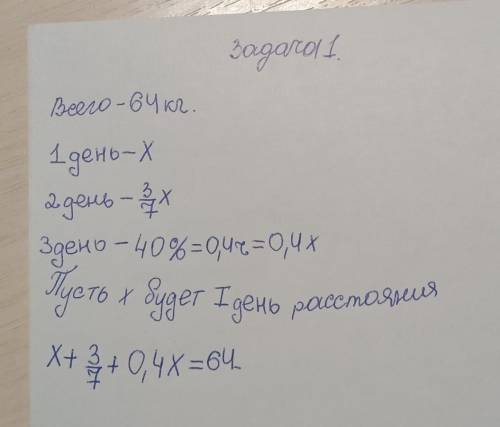 Задача 1.
Всего - 64 кг.
1 день - x
2 день - 3/7 x
3 день - 40% = 0,4ч = 0,4x
Пусть x будет I день расстояния
x + 3/7 + 0,4x = 64